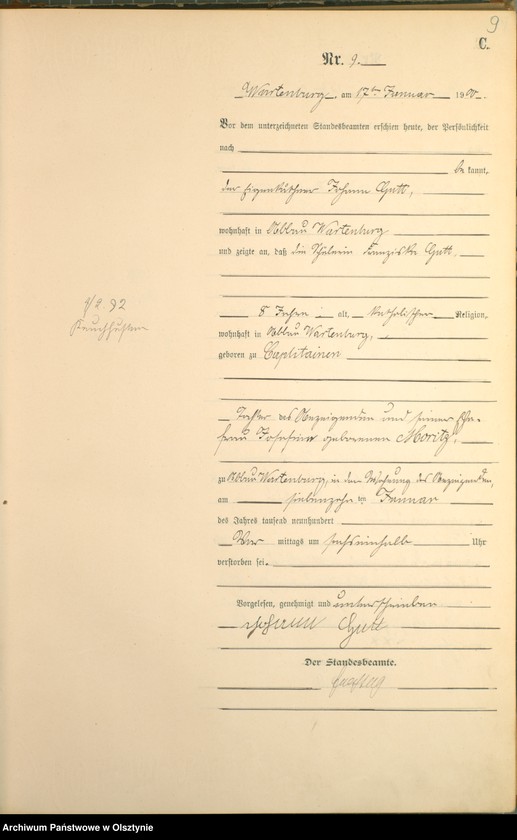 9
C.
Nr. 9.
Wartenburg, am 17ten Januar 1900.
Vor dem unterzeichneten Standesbeamten erschien heute, der Persönlichkeit
nach
be kannt,
der Eigenkäthner Johann Gutt,
wohnhaft in Abbau Wartenburg
und zeigte an, daß die Schülerin Franziska Gutt,
8 Jahre alt, katholischer Religion,
wohnhaft in Abbau Wartenburg,
geboren zu
Tochter des Anzeigenden und seiner Ehe-
frau Josefine geborenen Moritz,
zu Abbau Wartenburg, in der Wohnung des Anzeigenden,
am siebenzehnten Januar
des Jahres tausend neunhundert
Vor mittags um sechseinhalb Uhr
verstorben sei.
Vorgelesen, genehmigt und unterschrieben
Johann Gutt
Der Standesbeamte.
9/2 92
Keuchhusten
Archiwum Państwowe w Olsztynie